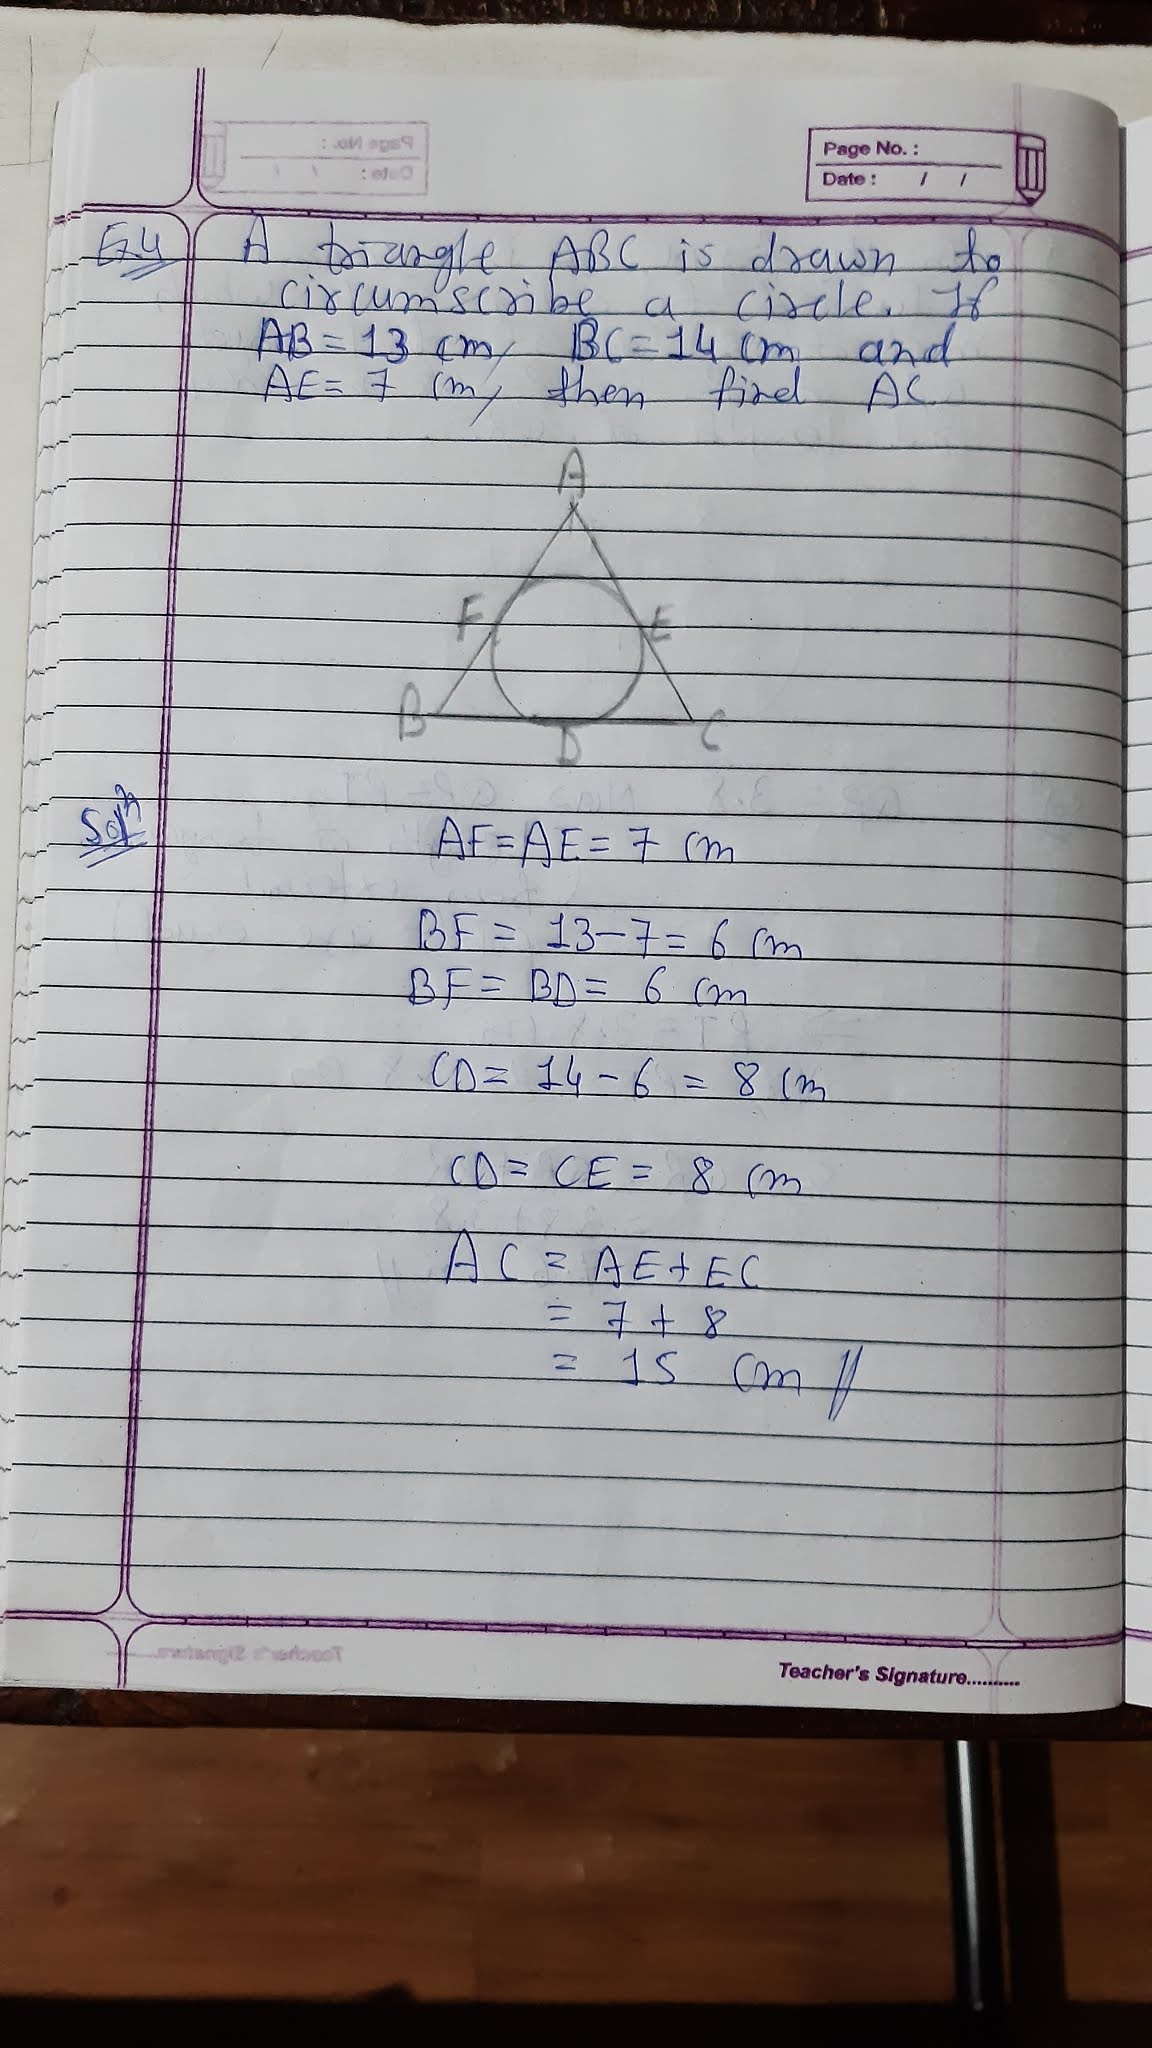 Page No. :
Date : / /
Ex.4 A triangle ABC is drawn to
circumscribe a circle. If
AB = 13 cm, BC = 14 cm and
AE = 7 cm, then find AC
A
F E
B D C
Solⁿ
AF = AE = 7 cm
BF = 13 - 7 = 6 cm
BF = BD = 6 cm
CD = 14 - 6 = 8 cm
CD = CE = 8 cm
AC = AE + EC
= 7 + 8
= 15 cm //
Teacher's Signature..........